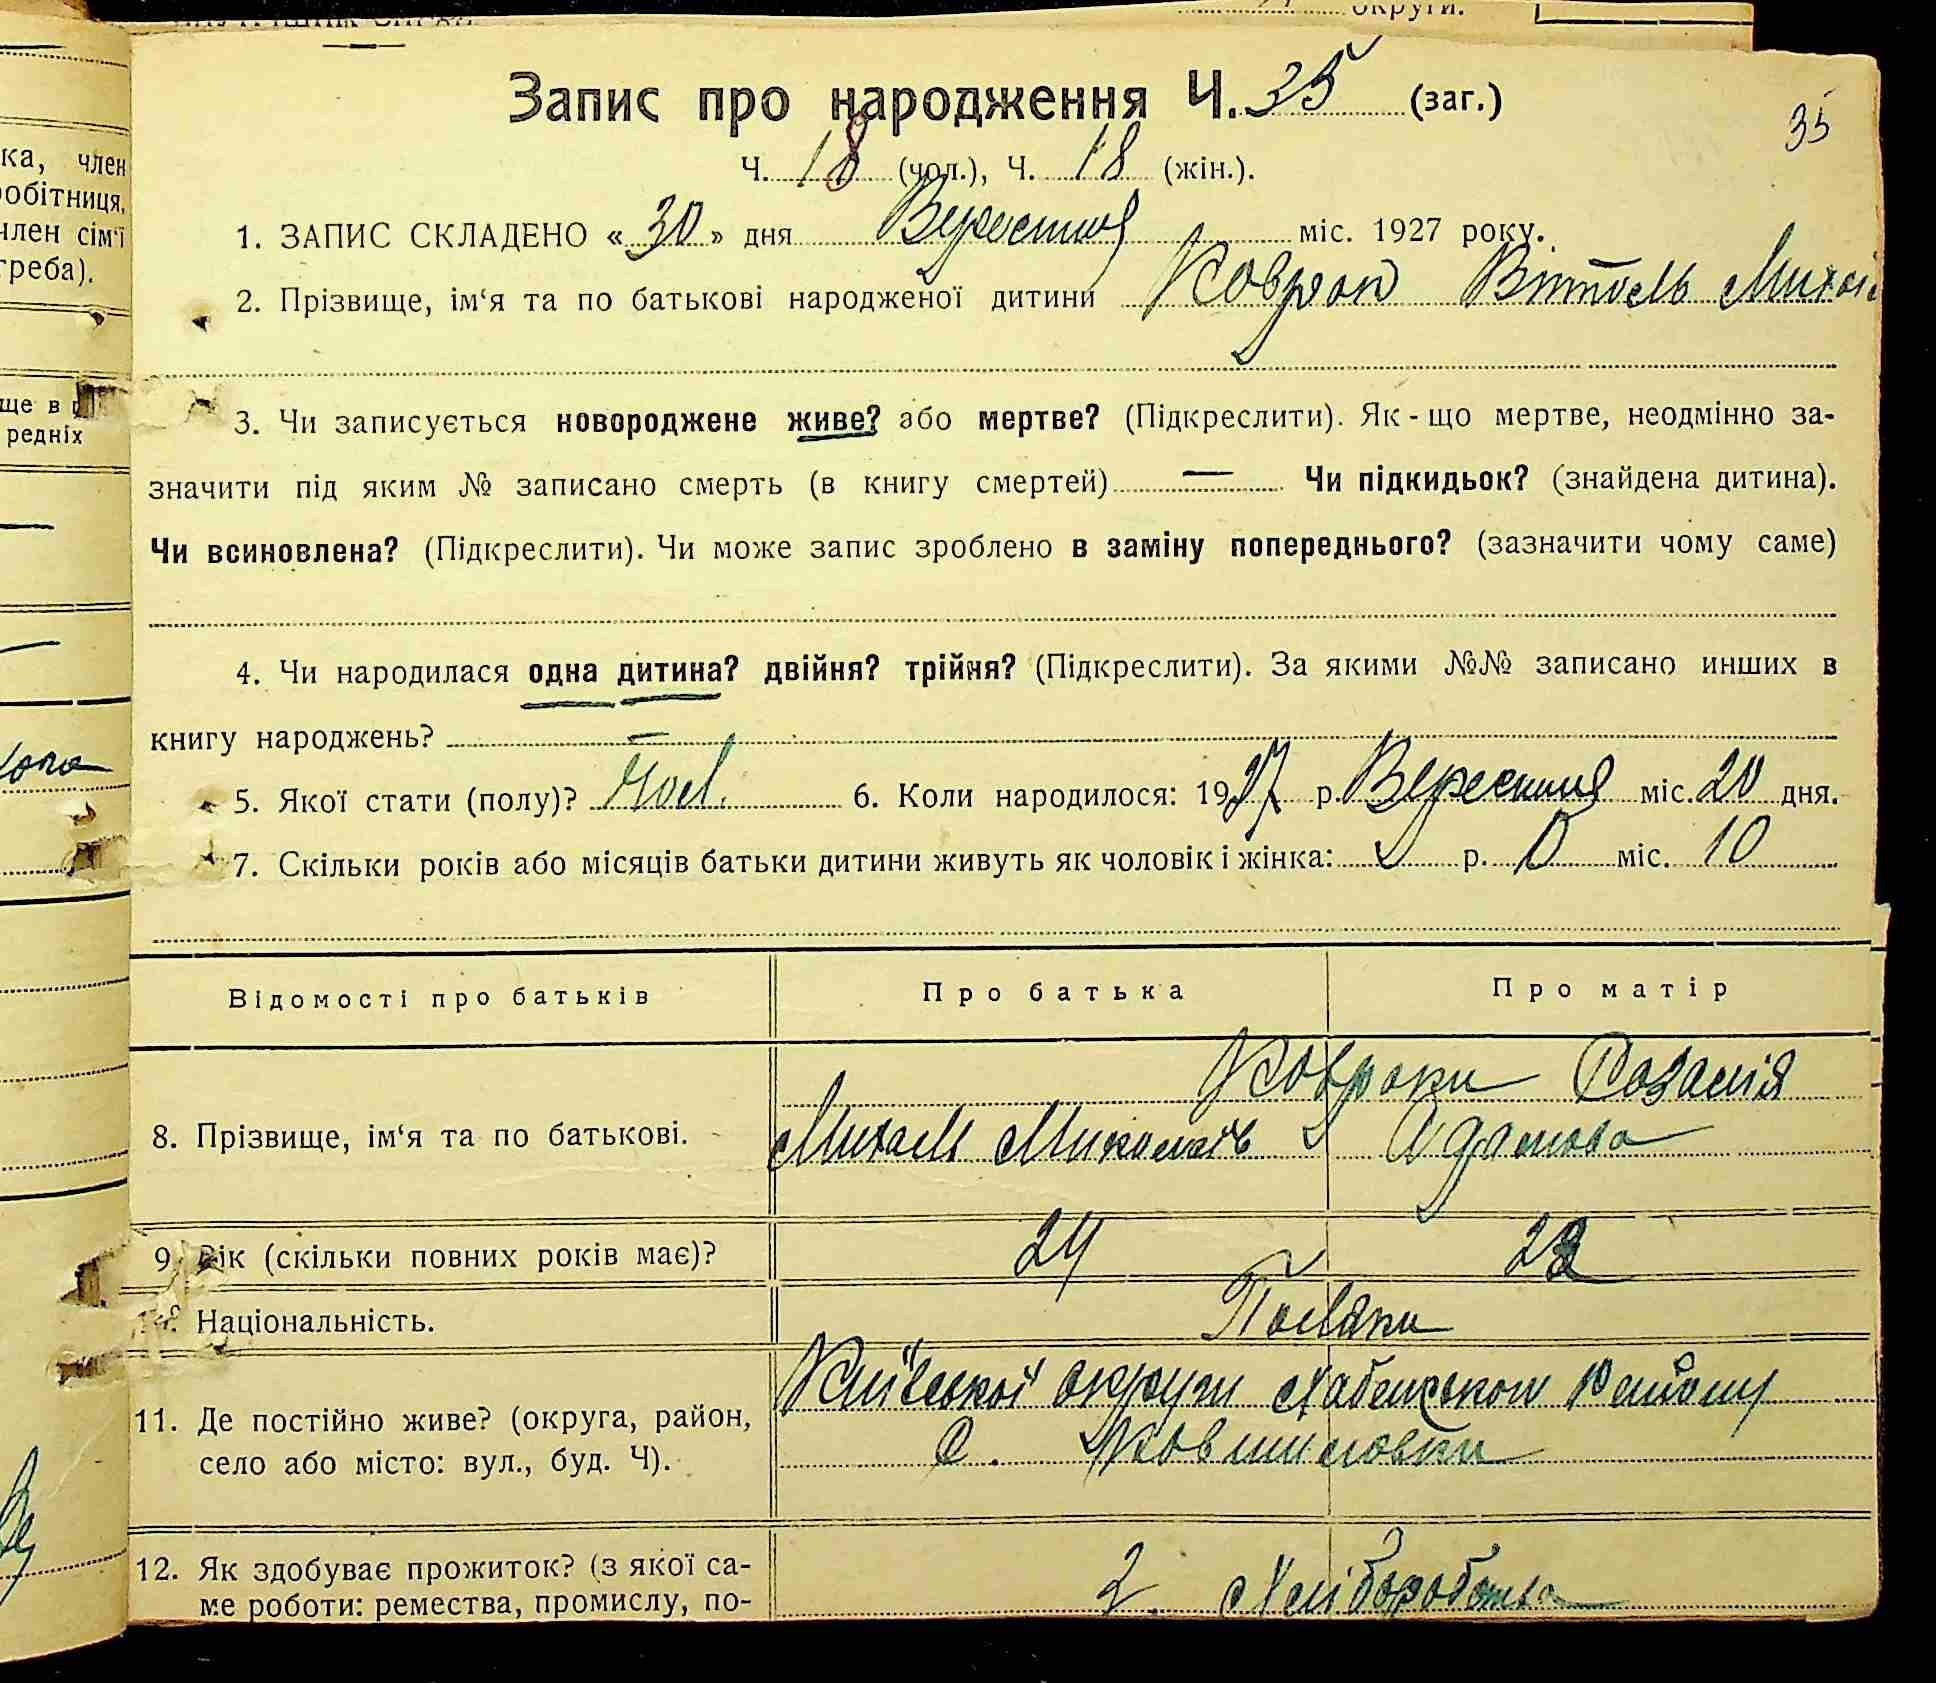 округи.
Запис про народження Ч. 35 (заг.)
35
Ч. 18 (чол.), Ч. 18 (жін.).
1. ЗАПИС СКЛАДЕНО «30» дня Вересния міс. 1927 року.
2. Прізвище, ім‘я та по батькові народженої дитини Коврок
3. Чи записується новороджене живе? або мертве? (Підкреслити). Як-що мертве, неодмінно за-
значити під яким № записано смерть (в книгу смертей) — Чи підкидьок? (знайдена дитина).
Чи всиновлена? (Підкреслити). Чи може запис зроблено в заміну попереднього? (зазначити чому саме)
4. Чи народилася одна дитина? двійня? трійня? (Підкреслити). За якими №№ записано инших в
книгу народжень? —
5. Якої стати (полу)? Чол. 6. Коли народилося: 1927 р. Вересния міс. 20 дня.
7. Скільки років або місяців батьки дитини живуть як чоловік і жінка: р. міс. 10
Відомості про батьків Про батька Про матір
Ковроки Розалія
8. Прізвище, ім‘я та по батькові. Михаль Миколаїв Адамова
9. Вік (скільки повних років має)? 24
Національність. Поляки
Київської округи Хабенського Району
11. Де постійно живе? (округа, район,
село або місто: вул., буд. Ч). с. Ковшиловки
12. Як здобуває прожиток? (з якої са-
ме роботи: ремества, промислу, по- 2. Хліборобство
ка, член
робітниця,
член сім‘ї
треба).
ще в
редніх